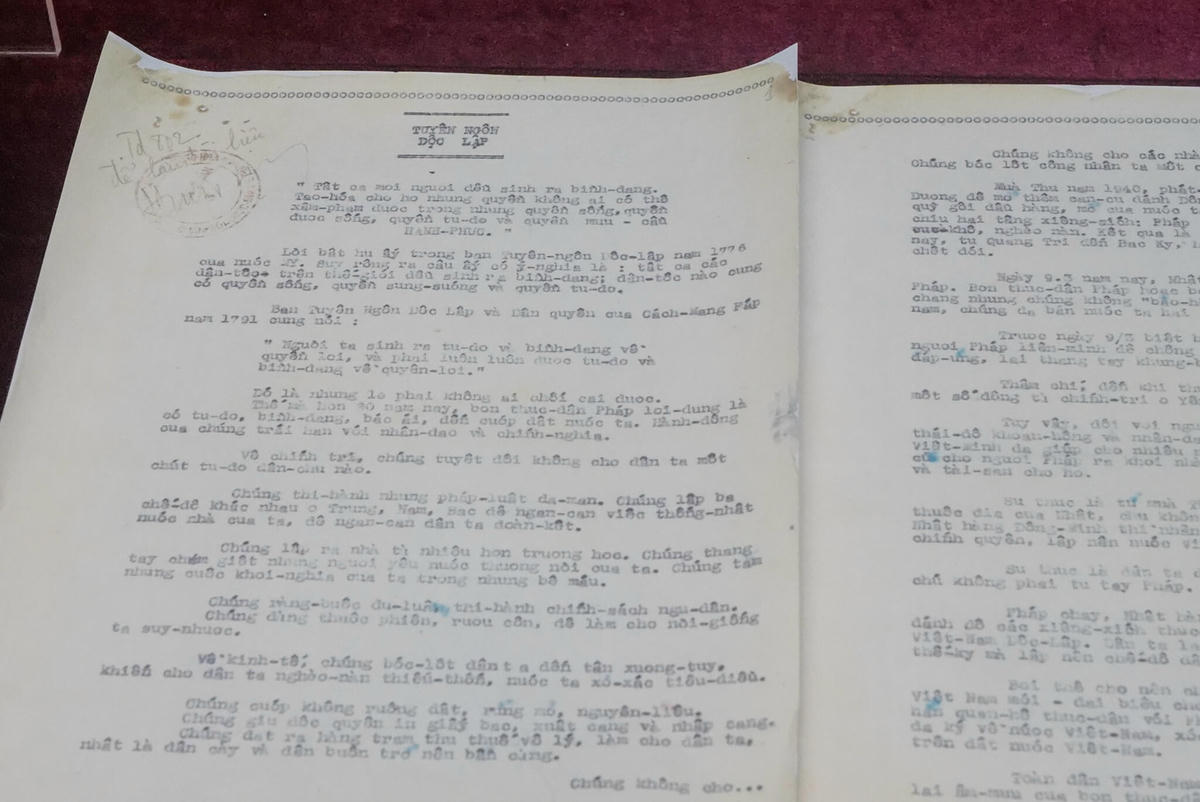 Td 802
TUYÊN NGÔN
DỘC LẬP
" Tất ca moi nguoi dều sinh ra bình-dang.
Tao-hóa cho ho nhung quyền không ai có thể
xâm-pham duoc trong nhung quyền sống, quyền
duoc sống, quyền tu-do và quyền muu - cầu
HANH-PHUC. "
Lời bất hu ấy trong ban Tuyên-ngôn Dôc-lâp nam 1776
cua nuoc My. Suy rông ra câu ấy có ý-nghia là : tất ca các
dân-tôc trên thế-gioi dều sinh ra bình-dang; dân-tôc nào cung
có quyền sống, quyền sung-suóng và quyền tu-do.
Ban Tuyên Ngôn Dôc Lâp và Dân quyền cua Cách-Mang Páp
nam 1791 cung nói :
" Nguòi ta sinh ra tu-do và bình-dang về
quyền loi, và phai luôn luôn duoc tu-do và
bình-dang về quyền-loi."
Dó là nhung le phai không ai chối cai duoc.
Thế mà hon 80 nam nay, bon thuc-dân Pháp loi-dung lá
có tu-do, bình-dang, bác ái, dến cuóp dất nuóc ta. Hành-dông
cua chúng trái han vói nhân-dao và chính-nghia.
Về chính trị, chúng tuyêt dối không cho dân ta môt
chút tu-do dân-chu nào.
Chúng thi-hành nhung pháp-luât da-man. Chúng lâp ba
chế-dô khác nhau o Trung, Nam, Bac dể ngan-can viêc thống-nhất
nuóc nhà cua ta, dể ngan-can dân ta doàn-kết.
Chúng lâp ra nhà tù nhiều hon truong hoc. Chúng thang
tay chém giết nhung nguoi yêu nuóc thuong nòi cua ta. Chúng tam
nhung cuôc khoi-nghia cua ta trong nhung bể máu.
Chúng ràng-buôc du-luân, thi-hành chính-sách ngu-dân.
Chúng dùng thuốc phiên, ruou cồn, dể làm cho nòi-giống
ta suy-nhuoc.
Về kinh-tế, chúng bóc-lôt dân ta dến tân xuong-tuy,
khiến cho dân ta nghèo-nàn thiếu-thốn, nuóc ta xo-xác tiêu-diều.
Chúng cuóp không ruông dất, rừng mỏ, nguyên-liêu.
Chúng giu dôc quyền in giấy bac, xuất cang và nhâp cang.
Chúng dat ra hàng tram thu thuế vô lý, làm cho dân ta,
nhất là dân cày và dân buôn tro nên bần cùng.
Chúng không cho...
Chúng không cho các nhà
Chúng bóc lôt công nhân ta môt c
Mùa Thu nam 1940, phát-
Duong dể mo thêm can-cu dánh Dồn
quỳ gối dầu hàng, mo cua nuóc t
chiu hai tầng xiềng-xích: Pháp
cuc-khổ, nghèo nàn. Kết qua là
nay, tu quang Tri dến Bac Ky,
chết dói.
Ngày 9.3 nam nay, Nhât
Pháp. Bon thuc-dân Pháp hoac b
chang nhung chúng không "bao-h
nam, chúng da bán nuóc ta hai
Truoc ngày 9/3 biết b
nguoi Pháp liên-minh dể chống
dáp-ung, lai thang tay khung-b
Thâm chí, dến khi th
môt số dông tù chính-tri o Yên
Tuy vây, dối vói ngu
thái-dô khoan-hồng và nhân-da
Viêt-minh da giúp cho nhiều n
cứu cho nguoi Pháp ra khoi nhà
và tài-san cho ho.
Su thuc là từ mùa
thuôc dia cua Nhât, chu không
Nhât hàng Dồng-Minh thì nhân
chính quyền, lâp nên nuóc Vi
Su thuc là dân ta
chú không phai tu tay Pháp.
Pháp chay, Nhât hàn
dánh dổ các xiềng-xích thuc
Viêt-Nam Dôc-Lâp. Dân ta la
thế-ky mà lâp nên chế-dô dâ
Boi thế cho nên
Viêt Nam mói - dai biểu cho
han quan-hê thuc-dân vói
da ký về nuóc Viêt-Nam, xó
trên dất nuóc Viêt-Nam.
Toàn dân Viêt-Nam
lai âm-muu cua bon thuc-dâ